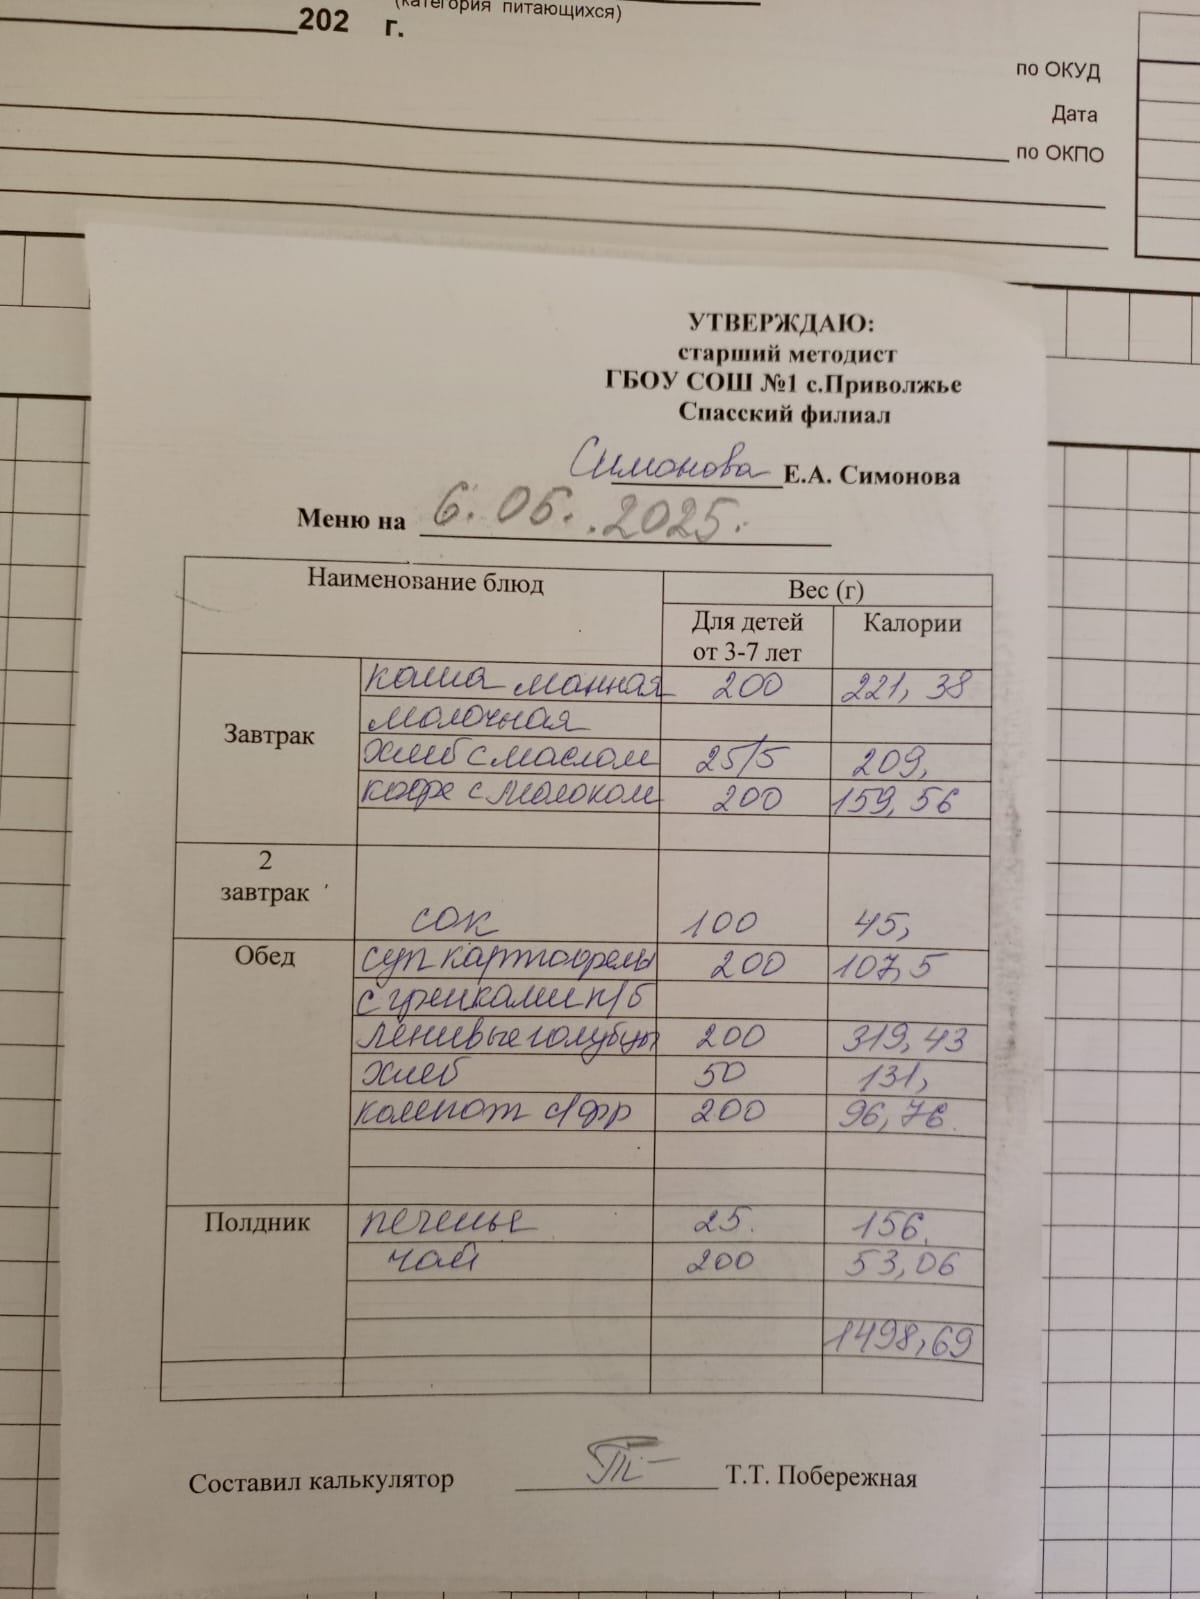 (категория питающихся)
202 г.
по ОКУД
Дата
по ОКПО
УТВЕРЖДАЮ:
старший методист
ГБОУ СОШ №1 с.Приволжье
Спасский филиал
Симонова Е.А. Симонова
Меню на 6.05.2025.
Наименование блюд Вес (г)
Для детей от 3-7 лет Калории
Завтрак
каша манная 200 221,38
молочная
хлеб с маслом 25/5 209,
кофе с молоком 200 159,56
2 завтрак
сок 100 45,
Обед
суп картофелы 200 107,5
с гренками п/б
ленивые голубцы 200 319,43
хлеб 50 131,
компот с/фр 200 96,76.
Полдник
печенье 25. 156.
чай 200 53,06
1498,69
Составил калькулятор Т.Т. Побережная